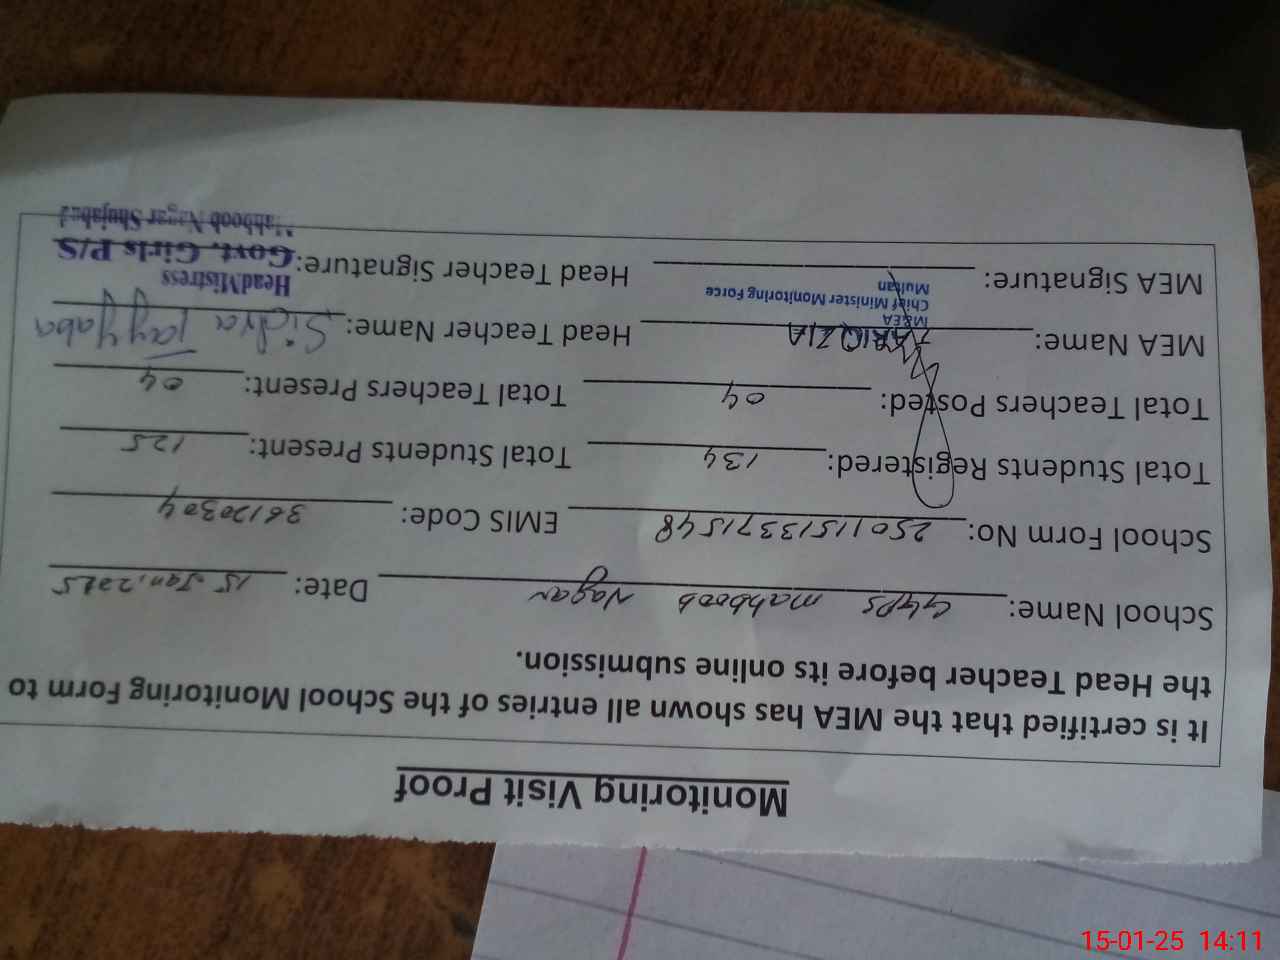 Monitoring Visit Proof
It is certified that the MEA has shown all entries of the School Monitoring Form to
the Head Teacher before its online submission.
School Name: GGPS mahboob Nagar Date: 15-Jan,2025
School Form No: 25011513371548 EMIS Code: 36120304
Total Students Registered: 134 Total Students Present: 125
Total Teachers Posted: 04 Total Teachers Present: 04
MEA Name: TARIQ ZIA Head Teacher Name: Sidra Tayyaba
M&EA
Chief Minister Monitoring Force
Multan
MEA Signature: Head Teacher Signature:
HeadMistress
Govt. Girls P/S
Mahboob Nagar Shujabad
15-01-25 14:11